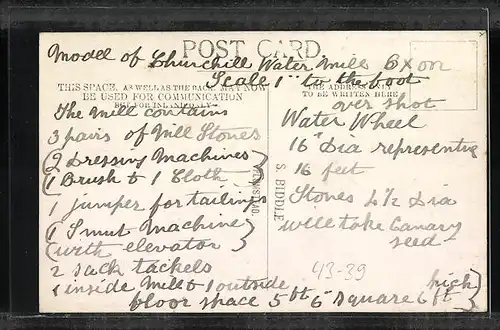 POST CARD
Model of Churchill Water Mill Oxon
Scale 1" to the foot
THIS SPACE, AS WELL AS THE BACK, MAY NOW
BE USED FOR COMMUNICATION
THE ADDRESS ONLY
TO BE WRITTEN HERE
The Mill contains
3 pairs of Mill Stones
(2 Dressing Machines)
(1 Brush & 1 Cloth)
1 jumper for tailings
1 Smut Machine
(with elevator)
2 sack tackels
1 inside Mill & 1 outside
floor space 5 ft 6" square 6 ft high
S. BIDDLE
over shot
Water Wheel
16" Dia representing
16 feet
Stones 4½ Dia
will take Canary
seed
43-39